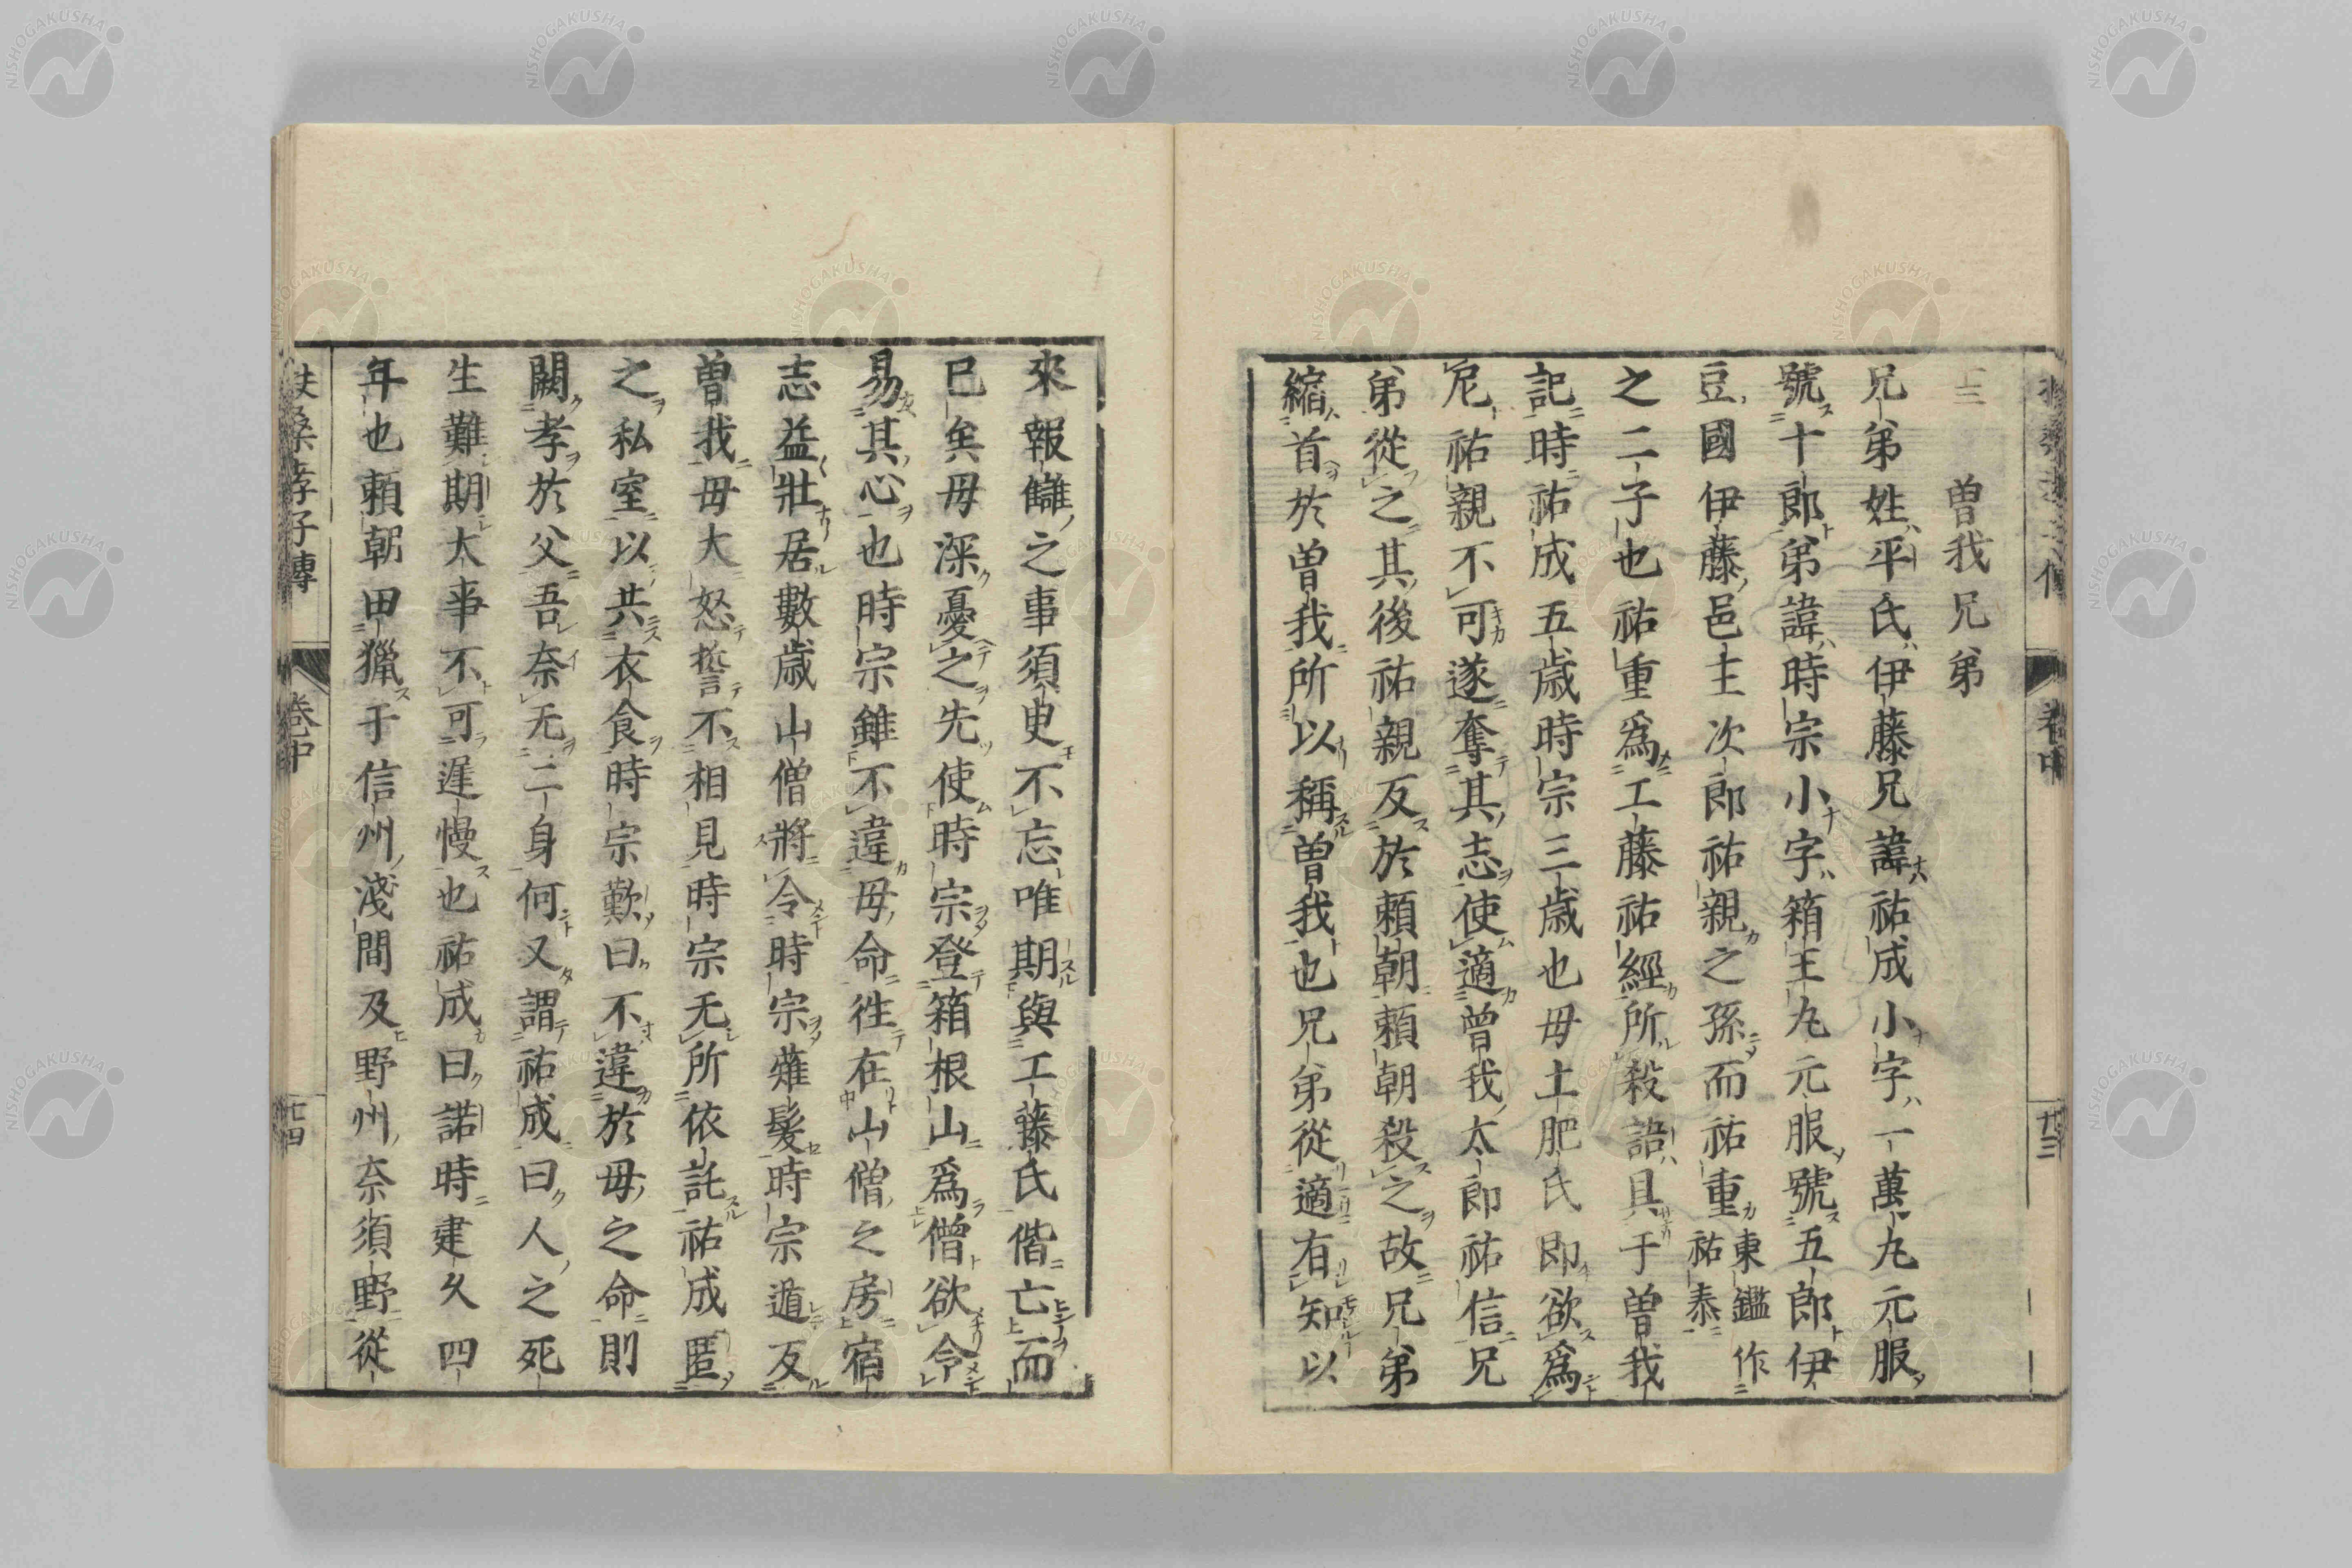 三
曽我兄弟
兄弟姓平氏伊藤兄諱祐成小字一萬丸元服
號十郎弟諱時宗小字箱王丸元服號五郎伊
豆國伊藤邑主次郎祐親之孫而祐重東鑑作祐泰
之二子也祐重爲工藤祐經所殺語具于曽我
記時祐成五歳時宗三歳也毋土肥氏即欲爲
尼祐親不可遂奪其志使適曽我太郎祐信兄
弟從之其後祐親反於頼朝頼朝殺之故兄弟
縮首於曽我所以稱曽我也兄弟從適有知以
來報讎之事須史不忘唯期與工藤氏偕亡而
已矣毋深憂之先使時宗登箱根山爲僧欲令
易其心也時宗雖不違毋命徃在山僧之房宿
志益壯居數歳山僧將令時宗薙髮時宗遁反
曽我毋大怒誓不相見時宗无所依託祐成匿
之私室以共衣食時宗歎曰不違於毋之命則
闕孝於父吾奈无二身何又謂祐成曰人之死
生難期大事不可遲慢也祐成曰諾時建久四
年也頼朝田獵于信州淺間及野州奈須野從
扶桑孝子傳
卷中
卷中
廿三
廿四
NISHOGAKUSHA